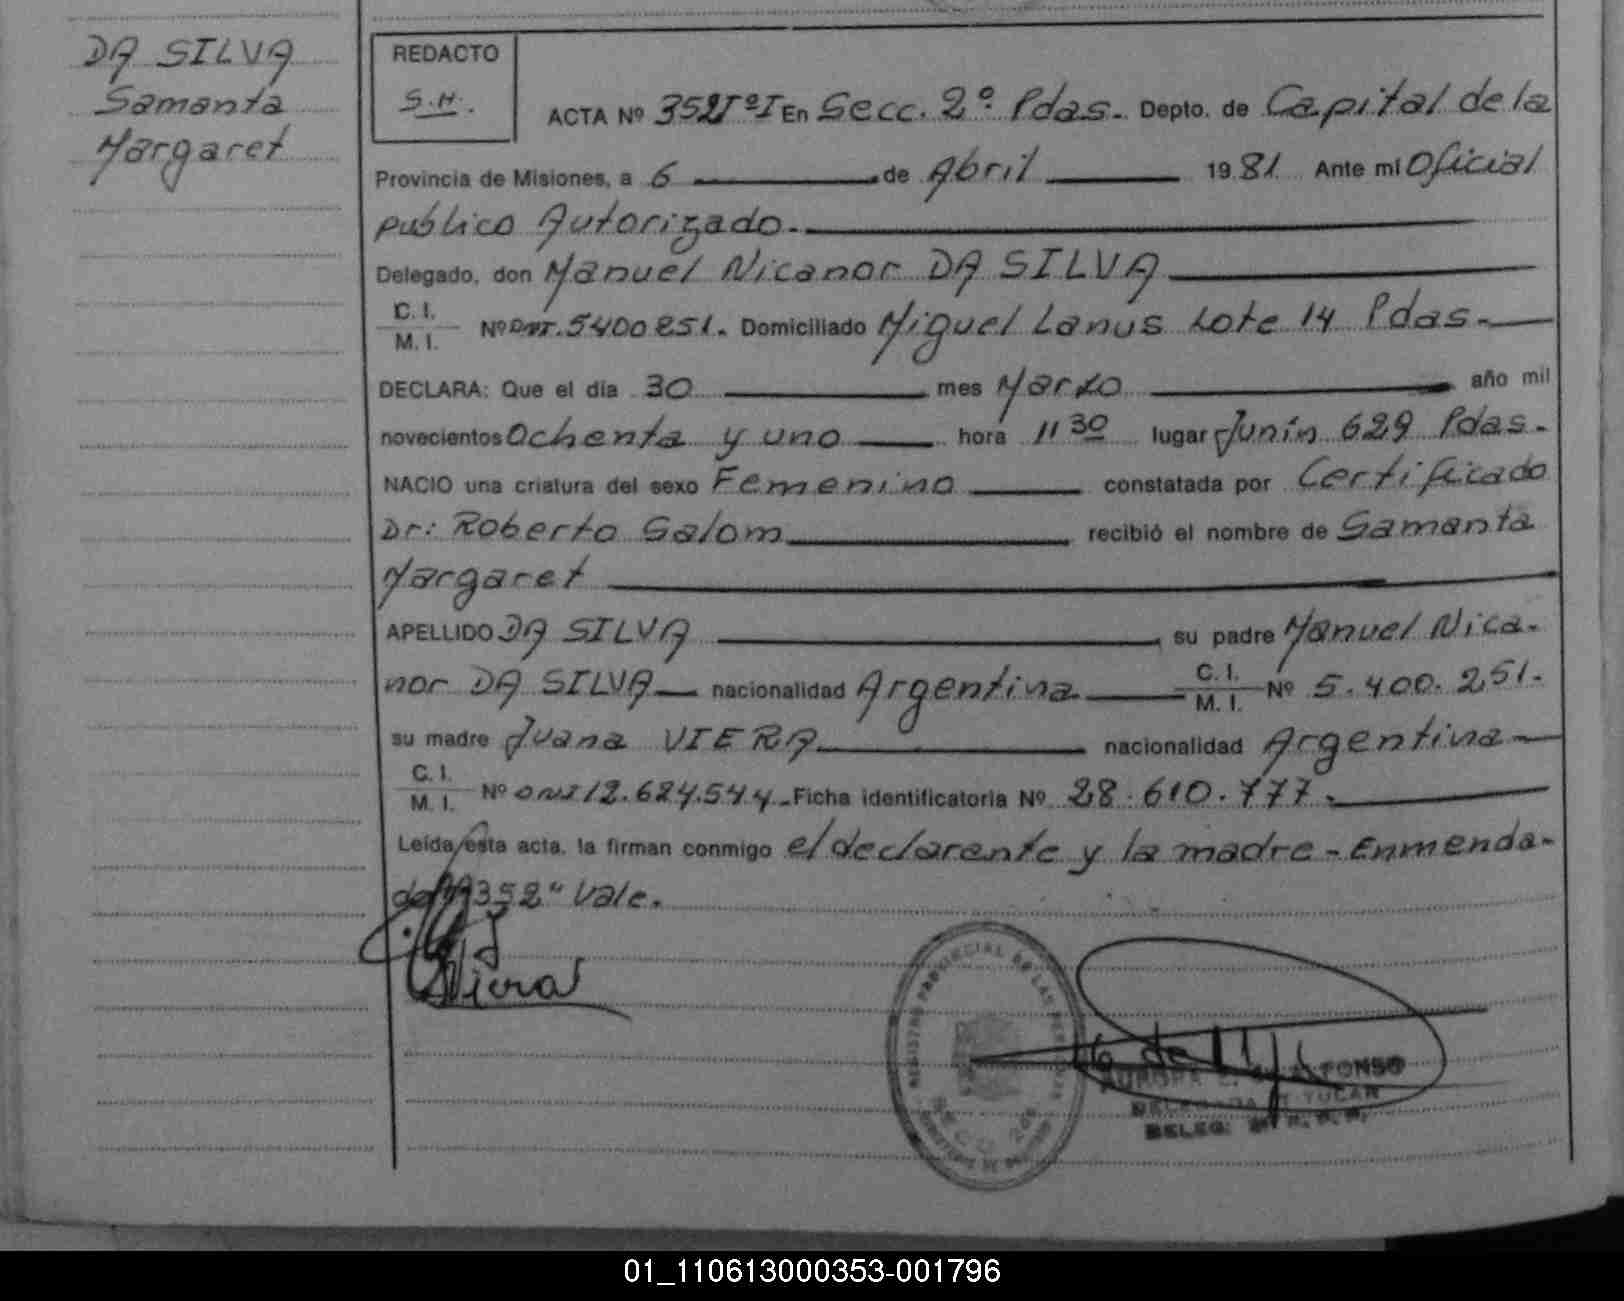 DA SILVA
Samanta
Margaret
REDACTO
S.H.
ACTA Nº 352Tº I En Secc. 2º Pdas. Depto. de Capital de la
Provincia de Misiones, a 6 de Abril 1981. Ante mi Oficial
publico Autorizado.
Delegado, don Manuel Nicanor DA SILVA
C. I.
M. I. Nº DNI. 5400251. Domiciliado Miguel Lanus Lote 14 Pdas.
DECLARA: Que el día 30 mes Marzo año mil
novecientos Ochenta y uno hora 11 30 lugar Junín 629 Pdas.
NACIO una criatura del sexo Femenino constatada por Certificado
Dr: Roberto Salom recibió el nombre de Samanta
Margaret
APELLIDO DA SILVA su padre Manuel Nica-
nor DA SILVA nacionalidad Argentina C. I. M. I. Nº 5.400.251.
su madre Juana VIERA nacionalidad Argentina
C. I.
M. I. Nº DNI 12.624.544. Ficha identificatoria Nº 28.610.777.
Leída esta acta, la firman conmigo el declarente y la madre - Enmenda-
do "352" Vale.
J Viera
REGISTRO PROVINCIAL DE LAS PERSONAS
SECC. 2da
DELEGADA TITULAR
DELEG. 2ª R. P. P.
01_110613000353-001796